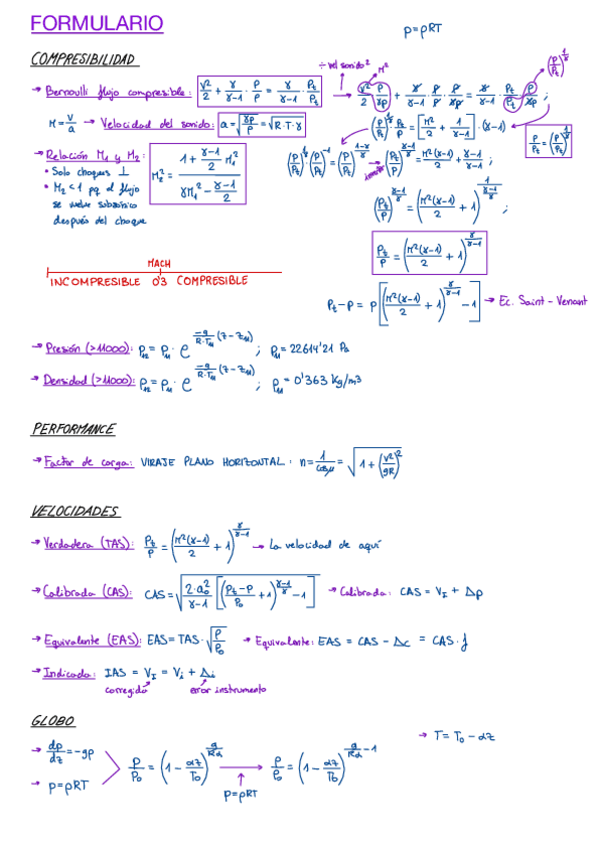 FORMULARIO
p=ρRT
COMPRESIBILIDAD
÷ vel sonido² M² (P/Pt)^(1/γ)
→ Bernoulli flujo compresible: V²/2 + γ/(γ-1) · P/ρ = γ/(γ-1) · Pt/ρt → V²/2 P/γP + γ/(γ-1) · P/ρ · ρ/γP = γ/(γ-1) · Pt/ρt · ρ/γP ;
M = V/a → Velocidad del sonido: a = √(γP/ρ) = √(R·T·γ)
(P/Pt)^(1/γ) Pt/P = [M²/2 + 1/(γ-1)] · (γ-1)
ρ/ρt = (P/Pt)^(1/γ)
→ Relación M₁ y M₂: M₂² = (1 + (γ-1)/2 M₁²) / (γM₁² - (γ-1)/2)
• Solo choques ⊥
• M₂<1 pq el flujo
se vuelve subsónico
después del choque
(P/Pt)^(1/γ) (P/Pt)^(-1) = (P/Pt)^((1-γ)/γ) → (Pt/P)^((γ-1)/γ) = M²(γ-1)/2 + (γ-1)/(γ-1) ;
(Pt/P)^((γ-1)/γ) = (M²(γ-1)/2 + 1)^(1/((γ-1)/γ)) ;
Pt/P = (M²(γ-1)/2 + 1)^(γ/(γ-1))
MACH
INCOMPRESIBLE 0'3 COMPRESIBLE
Pt-P = P[(M²(γ-1)/2 + 1)^(γ/(γ-1)) - 1] → Ec. Saint-Venant
→ Presión (>11000): P₁₂ = P₁₁ · e^(-g/(R·T₁₁) (z-z₁₁)) ; P₁₁ = 22614'21 Pa
→ Densidad (>11000): ρ₁₂ = ρ₁₁ · e^(-g/(R·T₁₁) (z-z₁₁)) ; ρ₁₁ = 0'363 Kg/m3
PERFORMANCE
→ Factor de carga: VIRAJE PLANO HORIZONTAL: n = 1/cosμ = √(1 + (V²/gR)²)
VELOCIDADES
→ Verdadera (TAS): Pt/P = (M²(γ-1)/2 + 1)^(γ/(γ-1)) → La velocidad de aquí
→ Calibrada (CAS): CAS = √(2·a₀²/(γ-1) [((Pt-P)/P₀ + 1)^((γ-1)/γ) - 1]) → Calibrada: CAS = V_I + Δp
→ Equivalente (EAS): EAS = TAS · √(ρ/ρ₀) → Equivalente: EAS = CAS - Δc = CAS · f
→ Indicada: IAS = V_I = Vi + Δi
corregida error instrumento
GLOBO
→ T = T₀ - αz
→ dp/dz = -gρ
P/P₀ = (1 - αz/T₀)^(g/Rα) → ρ/ρ₀ = (1 - αz/T₀)^(g/Rα - 1)
→ p=ρRT
p=ρRT